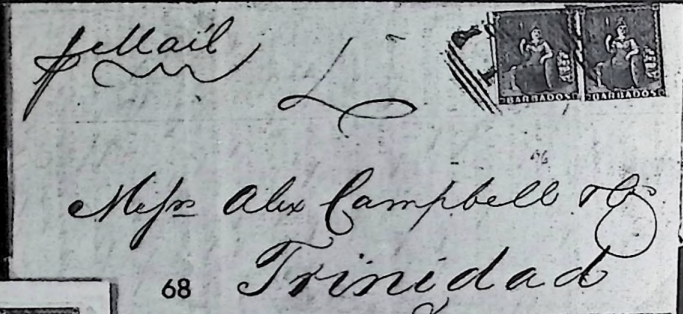 p Mail
BARBADOS BARBADOS
Messrs Alex Campbell & Co
Trinidad
68